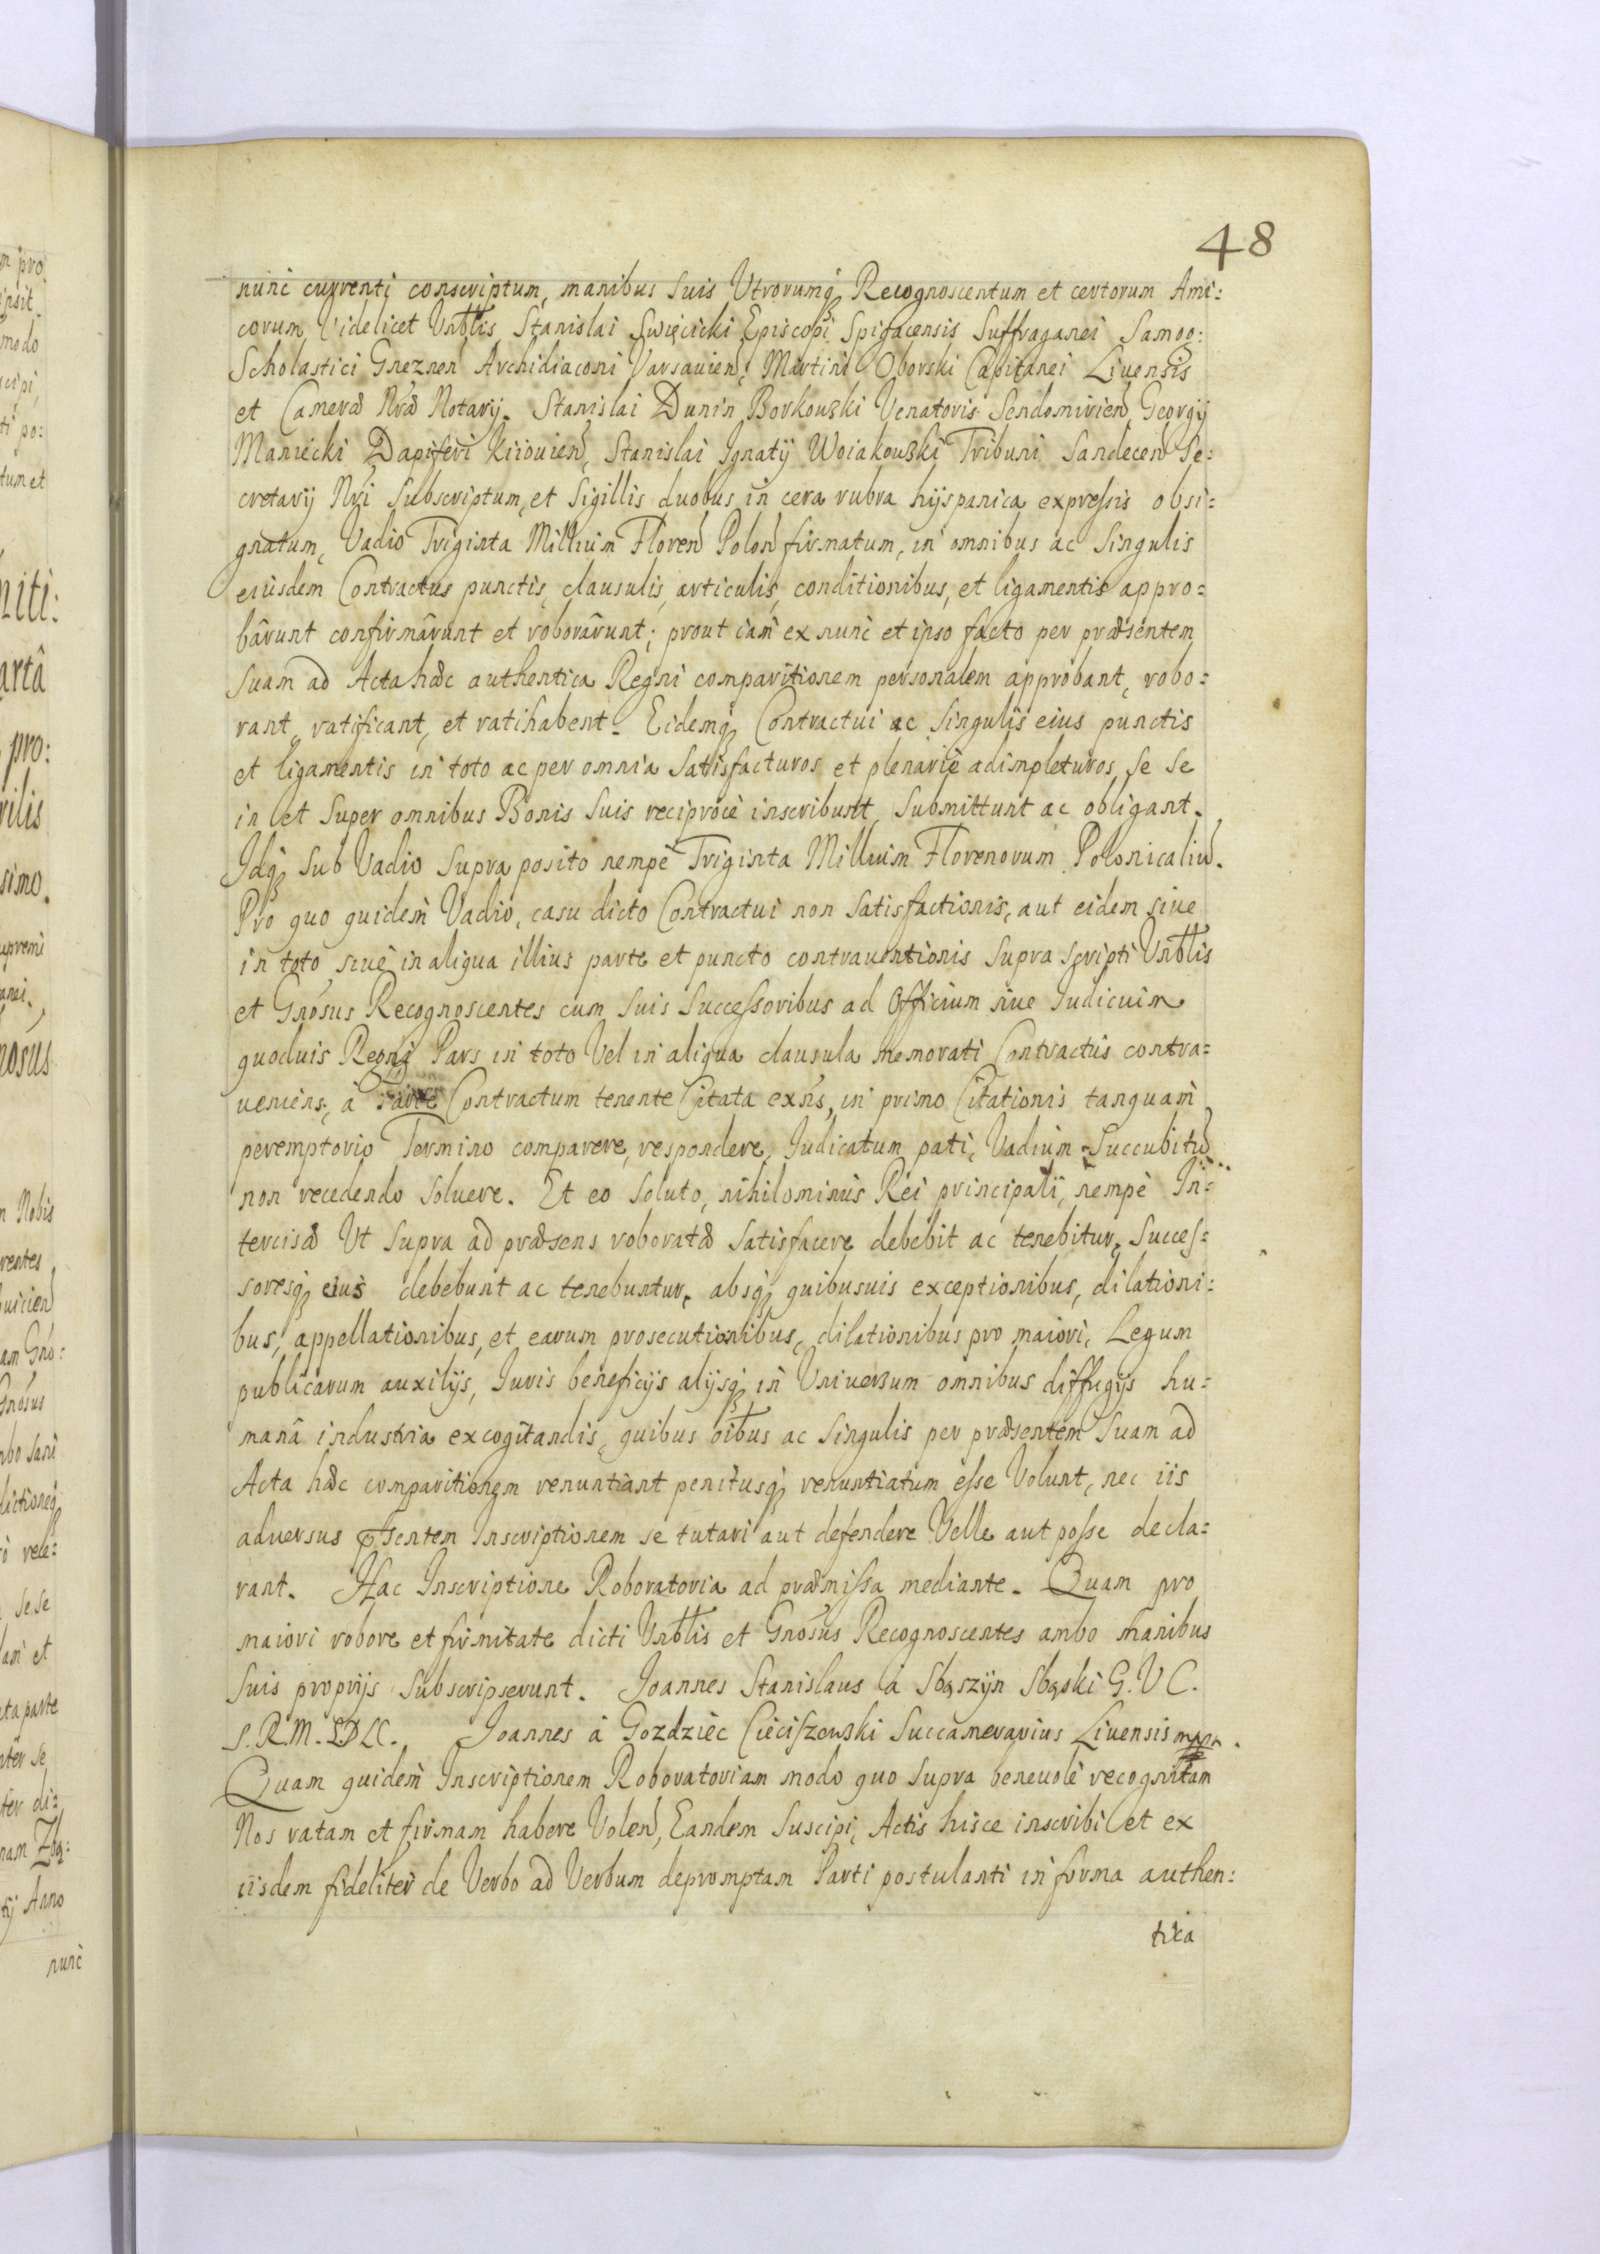 48
nunc currenti conscriptum, manibus suis Utrorumq Recognoscentum et certorum Ami:
corum Videlicet Urtlis Stanislai Swięcicki Episcopi Spigacensis Suffraganei Samog:
Scholastici Gneznen Archidiaconi Varsavien, Martini Oborski Capitanei Livensis
et Cameræ Nræ Notarij. Stanislai Dunin Borkowski Venatoris Sendomirien, Georgij
Maniecki Dapiferi Kiiovien, Stanislai Ignatij Woiakowski Tribuni Sandecen Se:
cretarij Nri Subscriptum, et Sigillis duobus in cera rubra hijspanica expressis obsi:
gnatum, Vadio Triginta Millium Floren Polon firmatum, in omnibus ac Singulis
eiusdem Contractus punctis, clausulis, articulis, conditionibus, et ligamentis appro:
bârunt confirmârunt et roborârunt; prout iam ex nunc et ipso facto per præsentem
suam ad Acta hæc authentica Regni comparitionem personalem approbant, robo:
rant, ratificant, et ratihabent. Eidemq Contractui ac singulis eius punctis
et ligamentis in toto ac per omnia Satisfacturos et plenariè adimpleturos se se
in et super omnibus Bonis Suis reciprocè inscribunt, submittunt ac obligant.
Idq sub Vadio supra posito nempè Triginta Millium Florenorum Polonicaliu.
Pro quo quidem Vadio, casu dicto Contractui non Satisfactionis, aut eidem sive
in toto sive in aliqua illius parte et puncto contraventionis supra scripti Urtlis
et Gnosus Recognoscentes cum suis Successoribus ad Officium sive Iudicium
quoduis Regni Pars in toto Vel in aliqua clausula memorati Contractus contra:
veniens, à Parte Contractum tenente Citata exns, in primo Citationis tanquam
peremptorio Termino comparere, respondere, Iudicatum pati, Vadium Succubitu
non recedendo solvere. Et eo soluto, nihilominus Rei principali, nempè In:
tercisæ Ut supra ad præsens roboratæ satisfacere debebit ac tenebitur, Succes:
soresq eius debebunt ac tenebuntur, absq quibusvis exceptionibus, dilationi:
bus, appellationibus, et earum prosecutionibus, dilationibus pro maiori, Legum
publicarum auxilijs, Iuris beneficijs alijsq in Universum omnibus diffugijs hu:
manâ industria excogitandis, quibus oibus ac singulis per præsentem suam ad
Acta hæc comparitionem renuntiant penitusq renuntiatum esse Volunt, nec iis
adversus psentem Inscriptionem se tutari aut defendere Velle aut posse decla:
rant. Hac Inscriptione Roboratoria ad præmissa mediante. Quam pro
maiori robore et firmitate dicti Urtlis et Gnosus Recognoscentes ambo manibus
suis proprijs subscripserunt. Joannes Stanislaus à Sbąszÿn Sbąski G.V.C.
S.R.M. Joannes à Gozdziec Cieciszewski Succamerarius Livensis mppr.
Quam quidem Inscriptionem Roboratoriam modo quo supra benevolè recognitam
Nos ratam et firmam habere Volen, Eandem Suscipi, Actis hisce inscribi et ex
iisdem fideliter de Verbo ad Verbum depromptam Parti postulanti in forma authen:
tica